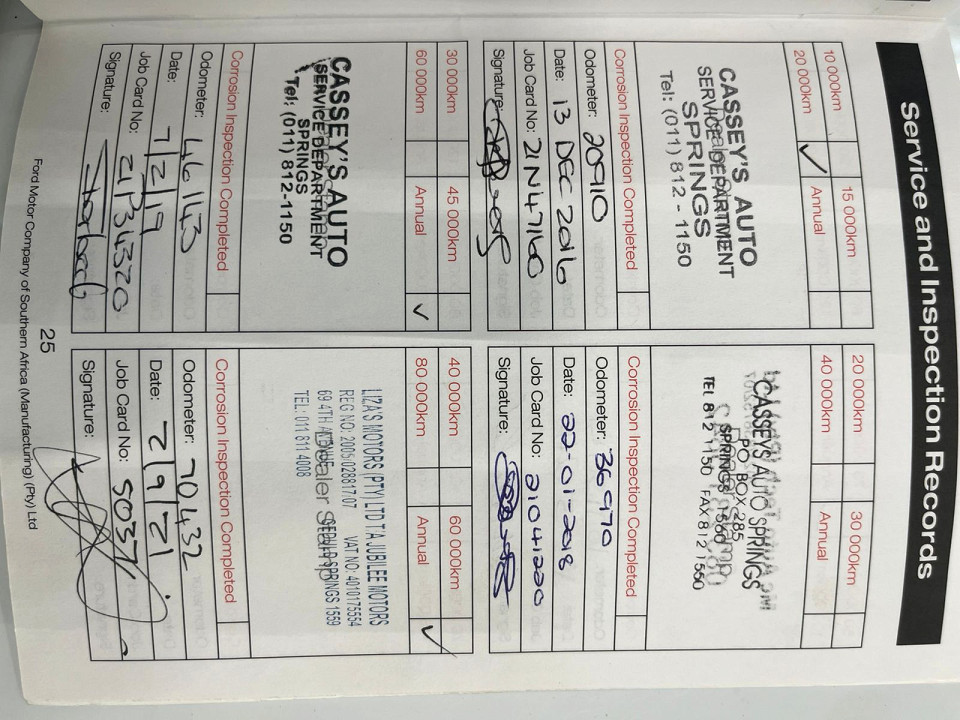 Service and Inspection Records
10 000km 15 000km
20 000km ✓ Annual
CASSEY'S AUTO
SERVICE DEPARTMENT
SPRINGS
Tel: (011) 812 - 1150
Corrosion Inspection Completed
Odometer: 20910
Date: 13 DEC 2016
Job Card No: 21N47160
Signature:
20 000km 30 000km
40 000km Annual
CASSEYS AUTO SPRINGS
P.O. BOX 285
SPRINGS 1560
TEL 812 1150 FAX 812 1560
Corrosion Inspection Completed
Odometer: 36970
Date: 22-01-2018
Job Card No: 21041220
Signature:
30 000km 45 000km
60 000km Annual ✓
CASSEY'S AUTO
SERVICE DEPARTMENT
SPRINGS
Tel: (011) 812-1150
Corrosion Inspection Completed
Odometer: 461143
Date: 7/2/19
Job Card No: 21P34320
Signature:
40 000km 60 000km
80 000km Annual ✓
LIZA'S MOTORS (PTY) LTD T/A JUBILEE MOTORS
REG NO: 2005/028817/07 VAT NO: 4010175554
69 4TH SPRINGS 1559
TEL: 011 811 4008
Corrosion Inspection Completed
Odometer: 70432
Date: 2/9/21
Job Card No: 5037
Signature:
25
Ford Motor Company of Southern Africa (Manufacturing) (Pty) Ltd